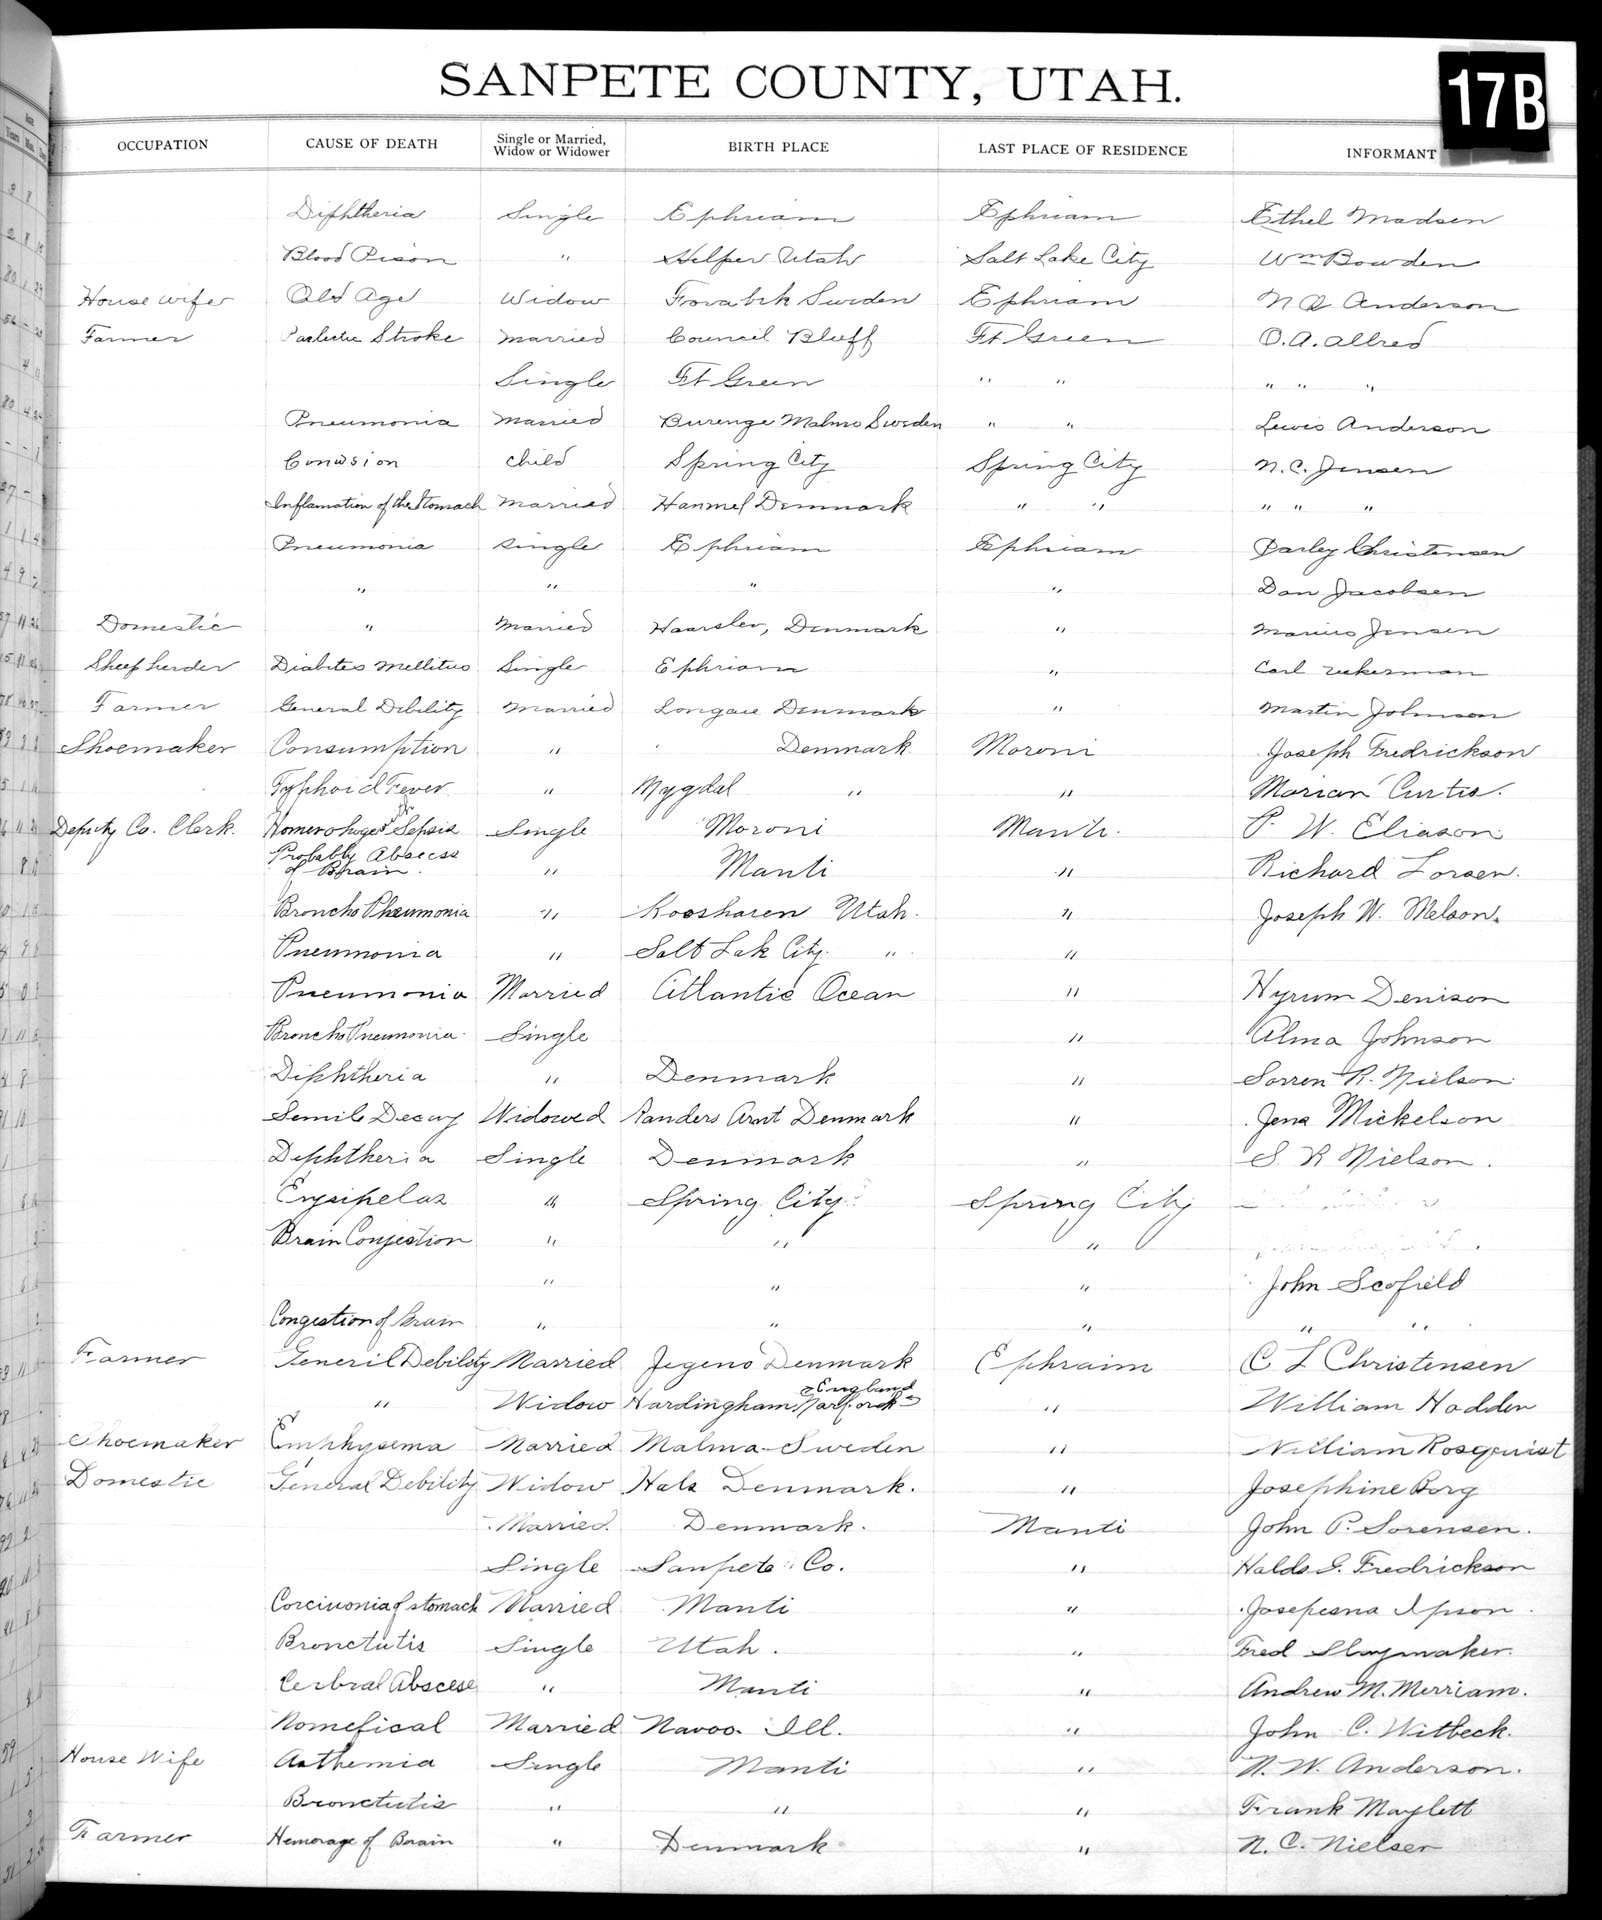 SANPETE COUNTY, UTAH.
17B
OCCUPATION CAUSE OF DEATH Single or Married, Widow or Widower BIRTH PLACE LAST PLACE OF RESIDENCE INFORMANT
Diphtheria Single Ephriam Ephriam Ethel Madsen
Blood Pison " Helper Utah Salt Lake City Wm Bowden
House wife Old Age Widow Sweden Ephriam Anderson
Farmer Stroke Married Council Bluff Ft Green O.A. Allred
Single Ft Green " " " " "
Pneumonia Married Malmo Sweden " " Lewis Anderson
child Spring City Spring City N.C. Jensen
Inflamation of the Stomach Married Denmark " " " " "
Pneumonia Single Ephriam Ephriam Parley Christensen
" " " " Dan Jacobsen
Domestic " Married Haarslev, Denmark " Marius Jensen
Sheep herder Diabites Mellitus Single Ephriam " Carl
Farmer General Dibility Married Denmark " Martin Johnson
Shoemaker Consumption " Denmark Moroni Joseph Fredrickson
Typhoid Fever " Mygdal " " Marian Curtis.
Deputy Co. Clerk. Sepsis Single Moroni Manti. P. W. Eliason
Probably Abscess of Brain. " Manti " Richard Larsen.
Broncho Pheumonia " Koosharen Utah. " Joseph W. Nelson.
Pneumonia " Salt Lak City. " "
Pneumonia Married Atlantic Ocean " Hyrum Denison
Broncho Pneumonia. Single " Alma Johnson
Diphtheria " Denmark " Sorren R. Nielson
Semile Decay Widowed Randers Amt Denmark " Jens Mickelson
Diphtheria Single Denmark " S. R Nielson.
Erysipelas " Spring City Spring City
Brain Conjestion " " "
" " " John Scofield
Congestion of Brain " " " " "
Farmer Generil Debility Married Jegeno Denmark Ephraim C L Christensen
" Widow Hardingham, England " William Hadden
Shoemaker Emphysema Married Malma-Sweden " William Rosquist
Domestic General Debility Widow Hals Denmark. " Josephine Borg
Married. Denmark. Manti John P. Sorensen.
Single Sanpete Co. " Halds G. Fredrickson
stomach Married Manti " Ipson.
Bronctutis Single Utah. " Fred Slaymaker.
Cerbral Abscese " Manti " Andrew M. Merriam.
Married Navoo. Ill. " John C. Witbeck.
House Wife Asthemia Single Manti " N. W. Anderson.
Bronctutis " " " Frank Maylett
Farmer Hemorage of Brain " Denmark " N. C. Nielsen